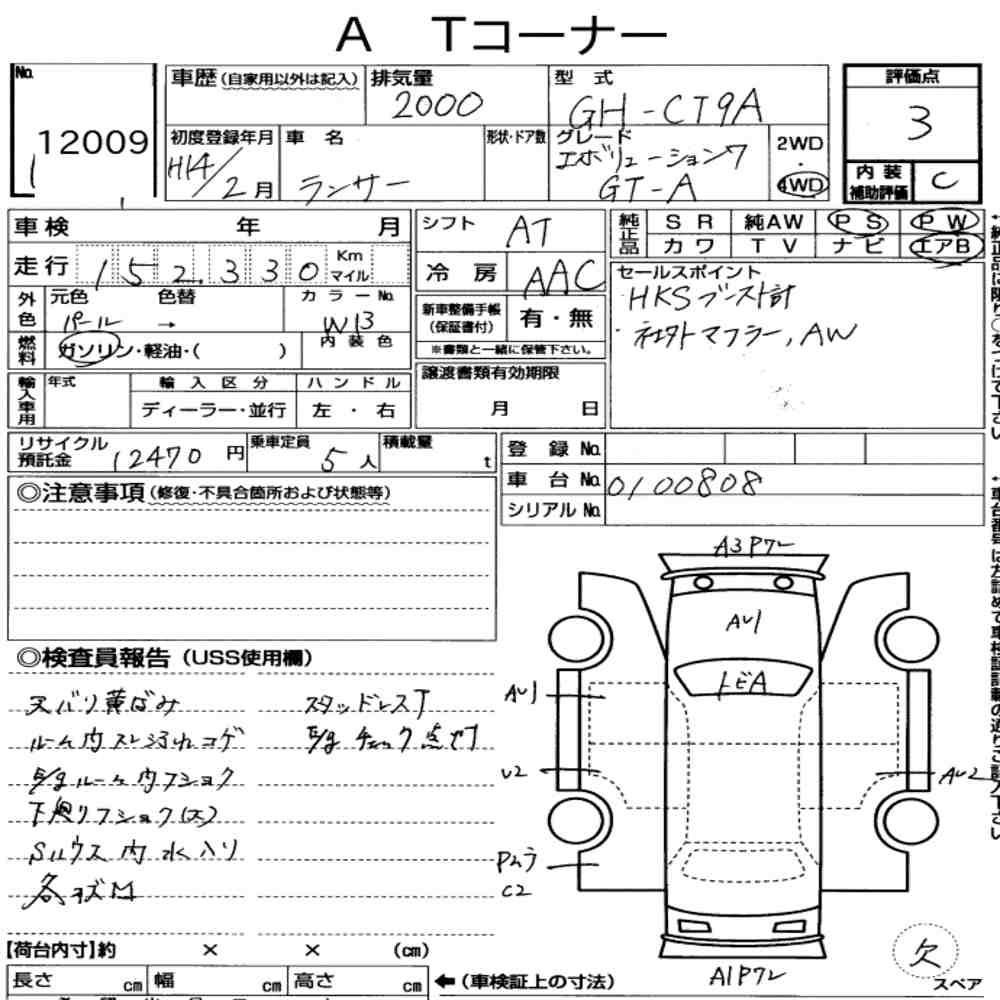 A Tコーナー
No.
12009
車歴(自家用以外は記入)
排気量
2000
型式
GH-CT9A
評価点
3
初度登録年月
H14/2月
車名
ランサー
形状・ドア数
グレード
エボリューション7
GT-A
2WD
4WD
内装補助評価
C
車検 年 月
走行 152,330 Km マイル
シフト AT
冷房 AAC
純正品
SR 純AW PS PW
カワ TV ナビ エアB
外色
元色 パール → 色替
カラーNo. W13
内装色
燃料 ガソリン・軽油・( )
新車整備手帳(保証書付) 有・無
※書類と一緒に保管下さい。
セールスポイント
HKSブースト計
・社外マフラー,AW
輸入車用
年式
輸入区分
ディーラー・並行
ハンドル
左・右
譲渡書類有効期限
月 日
リサイクル預託金 12470円
乗車定員 5人
積載量 t
登録No.
車台No. 0100808
シリアルNo.
◎注意事項(修復・不具合箇所および状態等)
◎検査員報告(USS使用欄)
天バリ黄ばみ
ルーム内スレ汚れコゲ
E/gルーム内フショク
下廻りフショク(大)
Sルウス内水入リ
各キズM
スタッドレスT
E/gチェック点灯
A3Pワレ
AU1
トビA
AU1
U2
AU2
Pムラ
C2
A1Pワレ
欠
スペア
【荷台内寸】約 × × (cm)
長さ cm 幅 cm 高さ cm
←(車検証上の寸法)